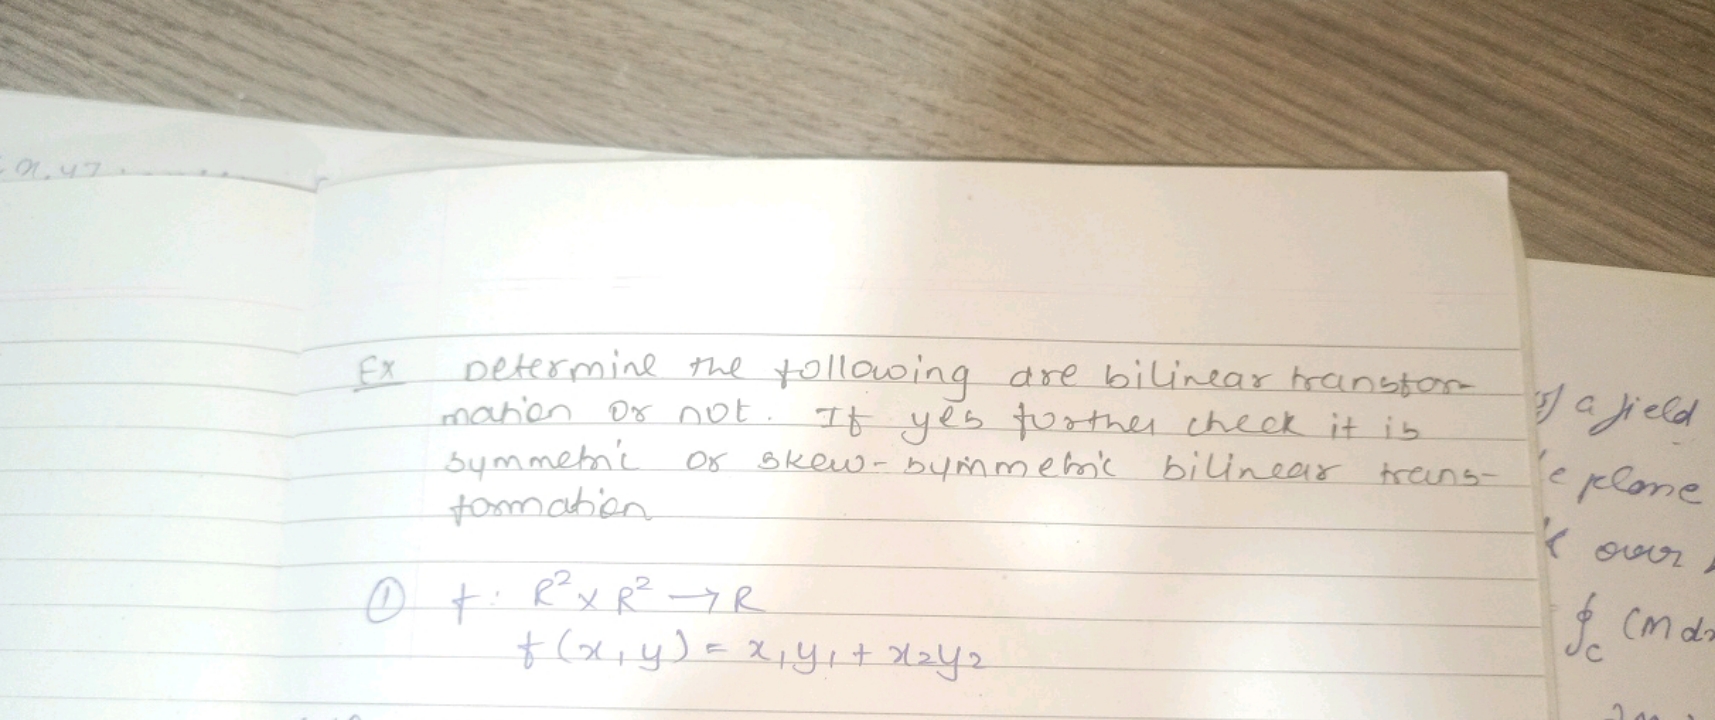 Ex Determine the following are bilinear transfor-
mation or not. If yes further check it is
symmetric or skew-symmetric bilinear trans-
formation
① f: R² x R² → R
f(x, y) = x₁y₁ + x₂y₂
a field
plane
over
∮c (M dx